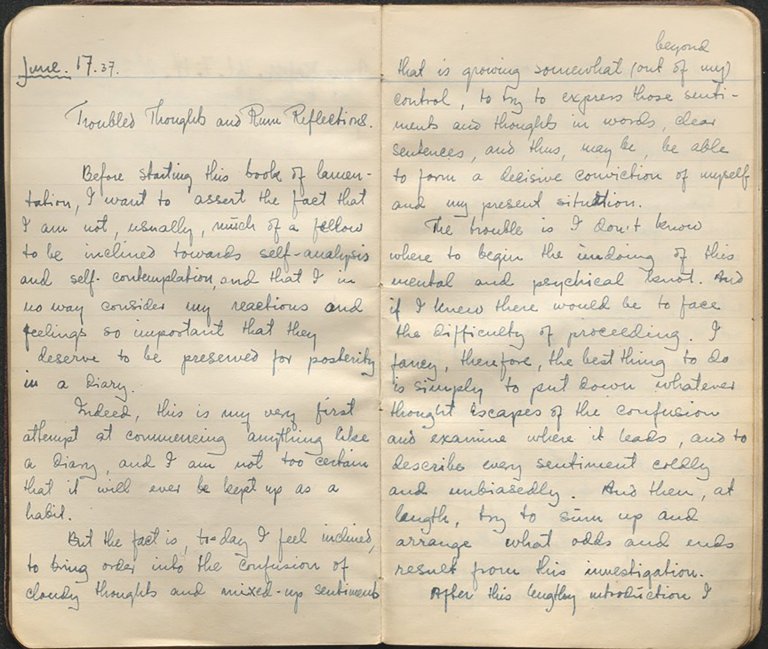 June. 17.37.
Troubled Thoughts and Rum Reflections.
Before starting this book of lamen-
tation, I want to assert the fact that
I am not, usually, much of a fellow
to be inclined towards self-analysis
and self-contemplation, and that I in
no way consider my reactions and
feelings so important that they
deserve to be preserved for posterity
in a diary.
Indeed, this is my very first
attempt at commencing anything like
a diary, and I am not too certain
that it will ever be kept up as a
habit.
But the fact is, to-day I feel inclined,
to bring order into the confusion of
cloudy thoughts and mixed-up sentiments
beyond
that is growing somewhat (out of my)
control, to try to express those senti-
ments and thoughts in words, clear
sentences, and thus, may be, be able
to form a decisive conviction of myself
and my present situation.
The trouble is I don't know
where to begin the undoing of this
mental and psychical knot. And
if I knew there would be to face
the difficulty of proceeding. I
fancy, therefore, the best thing to do
is simply to put down whatever
thought escapes of the confusion
and examine where it leads, and to
describe every sentiment coldly
and unbiasedly. And then, at
length, try to sum up and
arrange what odds and ends
result from this investigation.
After this lengthy introduction I